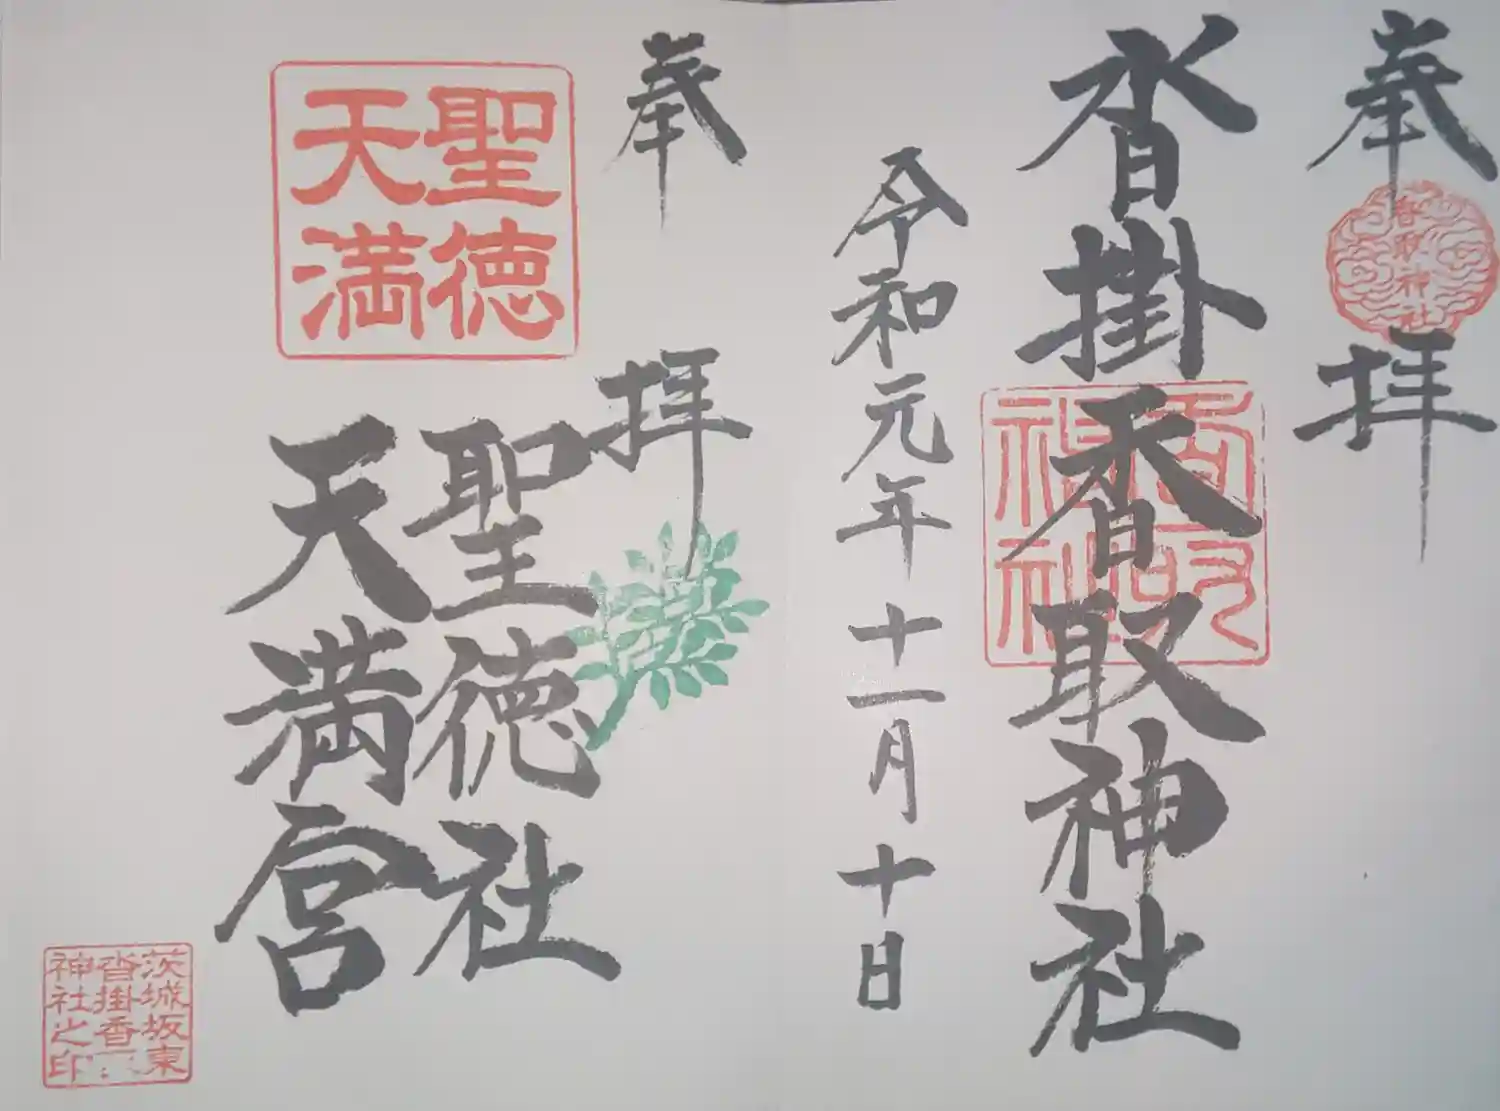 奉拝
香取神社
沓掛香取神社
香取神社
令和元年十一月十日
奉拝
聖徳社
天満宮
聖徳
天満
茨城坂東
沓掛香
神社之印